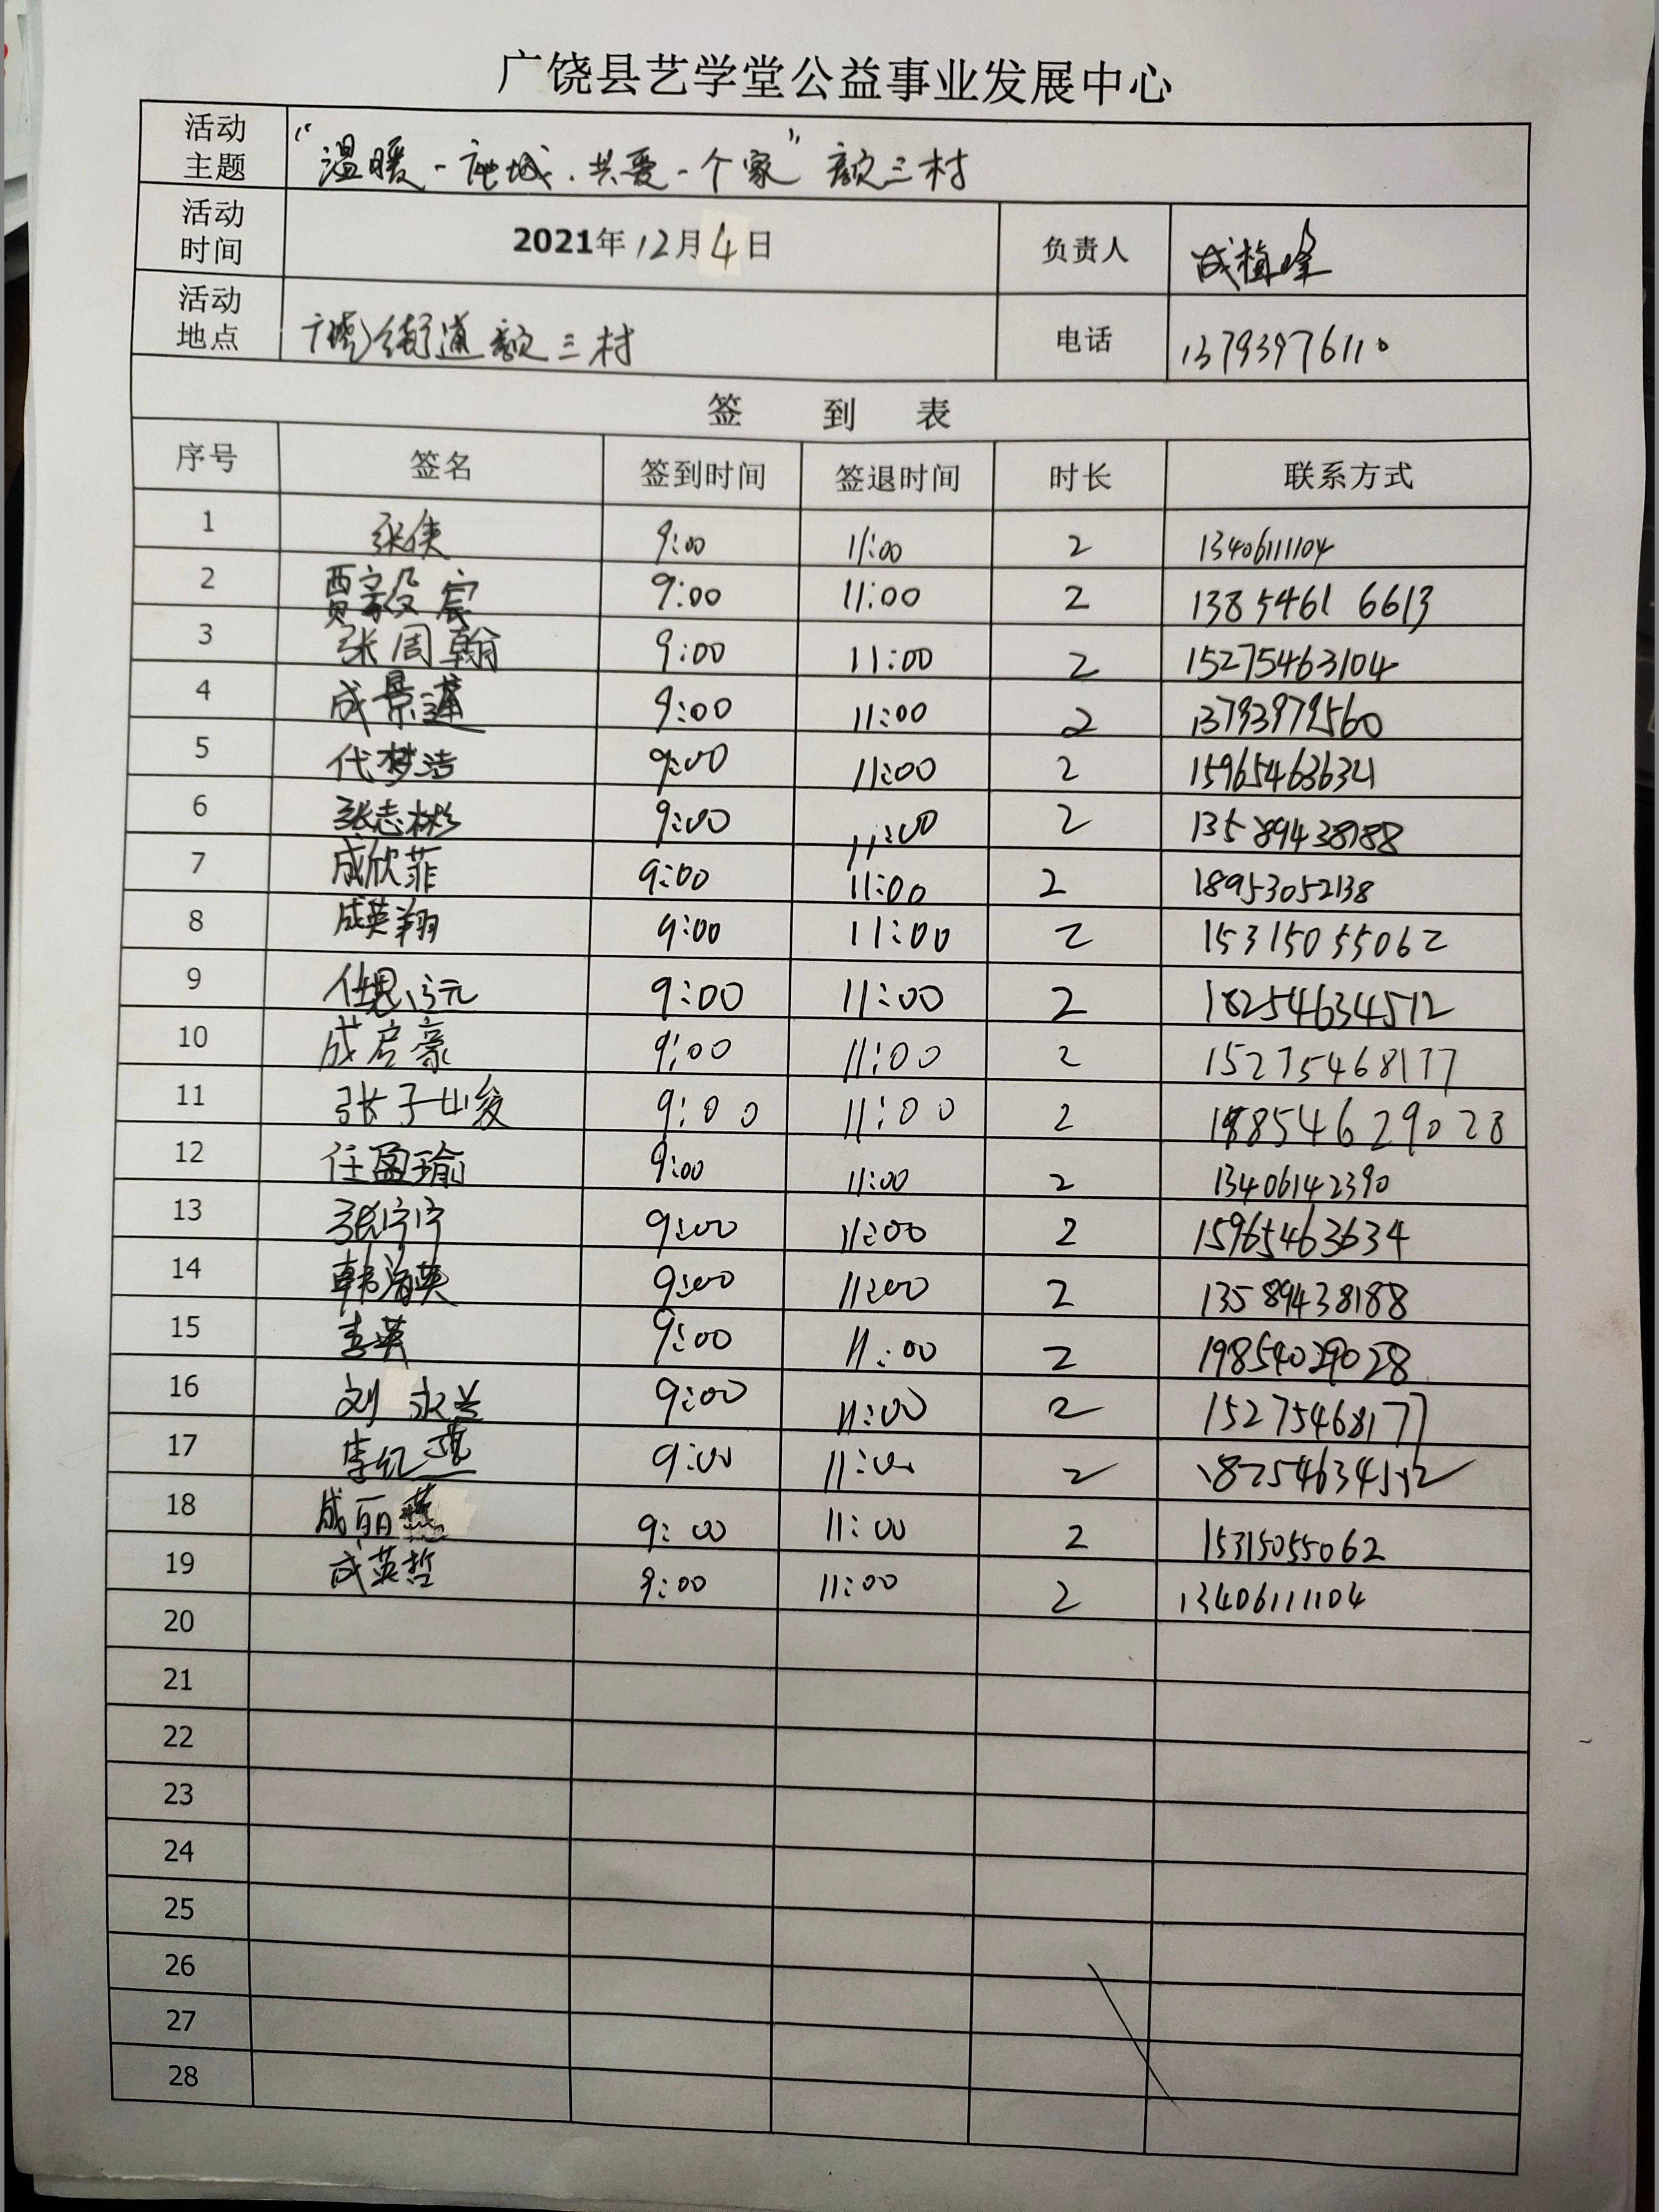 广饶县艺学堂公益事业发展中心
活动主题 "温暖一座城.共爱一个家" 颜三村
活动时间 2021年12月4日 负责人 成梅峰
活动地点 广饶街道颜三村 电话 13793976110
签 到 表
序号 签名 签到时间 签退时间 时长 联系方式
1 张侠 9:00 11:00 2 13406111104
2 贾 宸 9:00 11:00 2 13854616613
3 张周翰 9:00 11:00 2 15275463104
4 成景 9:00 11:00 2 13793979560
5 代梦洁 9:00 11:00 2
6 张志彬 9:00 11:00 2 13589438188
7 成欣菲 9:00 11:00 2 18953052138
8 成英翔 9:00 11:00 2 15315055062
9 任思元 9:00 11:00 2 18254634512
10 成启豪 9:00 11:00 2 15275468177
11 张子峻 9:00 11:00 2 19854629028
12 任盈瑜 9:00 11:00 2 13406142390
13 张宁宁 9:00 11:00 2 15965463634
14 韩海英 9:00 11:00 2 13589438188
15 李英 9:00 11:00 2
16 刘永兰 9:00 11:00 2 15275468177
17 李红燕 9:00 11:00 2 18254634512
18 成丽燕 9:00 11:00 2 15315055062
19 成英哲 9:00 11:00 2 13406111104
20
21
22
23
24
25
26
27
28